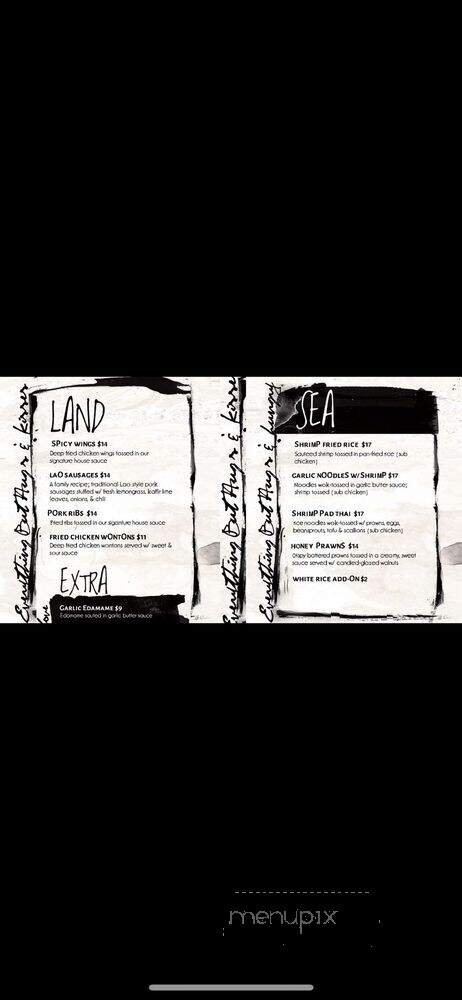 Everything But Hugs & Kisses
LAND
SPICY WINGS $14
Deep fried chicken wings tossed in our
signature house sauce
LAO SAUSAGES $14
A family recipe; traditional Lao style pork
sausages stuffed w/ fresh lemongrass, kaffir lime
leaves, onions, & chili
PORK RIBS $14
Fried ribs tossed in our siganture house sauce
FRIED CHICKEN WONTONS $11
Deep fried chicken wontons served w/ sweet &
sour sauce
EXTRA
GARLIC EDAMAME $9
Edamame sauted in garlic butter sauce
Everything But Hugs & Kisses
Everything But Hugs &
SEA
SHRIMP FRIED RICE $17
Sauteed shrimp tossed in pan-fried rice (sub
chicken)
GARLIC NOODLES W/ SHRIMP $17
Noodles wok-tossed in garlic butter sauce;
shrimp tossed (sub chicken)
SHRIMP PAD THAI $17
rice noodles wok-tossed w/ prawns, eggs,
beansprouts, tofu & scallions (sub chicken)
HONEY PRAWNS $14
Crispy battered prawns tossed in a creamy, sweet
sauce served w/ candied-glazed walnuts
WHITE RICE ADD-ON $2
menupix